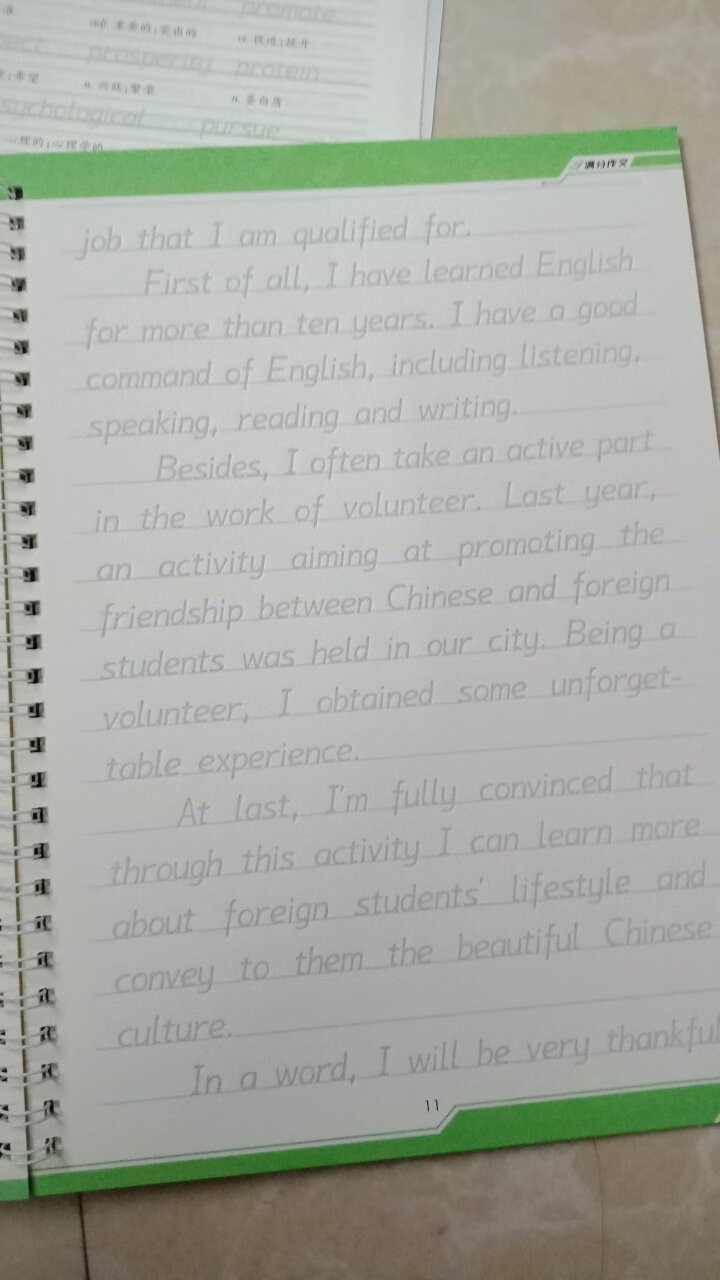 promote
adj. 未来的;突出的
vt. 促进;提升
prosperity protein
n. 兴旺;繁荣
n. 蛋白质
psychological pursue
心理的;心理学的
满分作文
job that I am qualified for.
First of all, I have learned English
for more than ten years. I have a good
command of English, including listening,
speaking, reading and writing.
Besides, I often take an active part
in the work of volunteer. Last year,
an activity aiming at promoting the
friendship between Chinese and foreign
students was held in our city. Being a
volunteer, I obtained some unforget-
table experience.
At last, I'm fully convinced that
through this activity I can learn more
about foreign students' lifestyle and
convey to them the beautiful Chinese
culture.
In a word, I will be very thankful
11